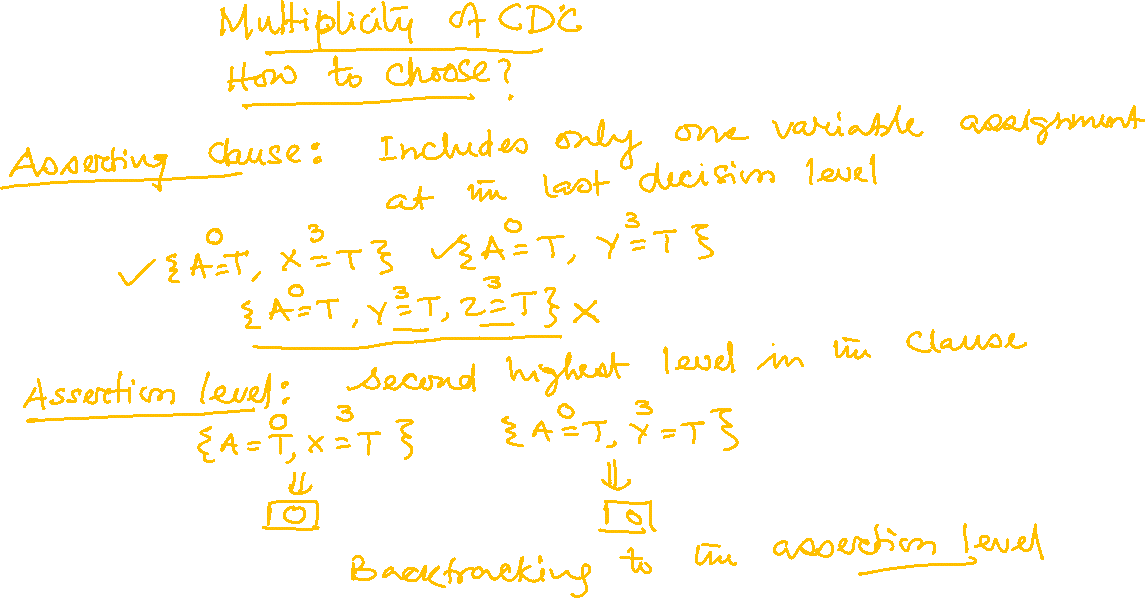 Multiplicity of CDC
How to choose?
Asserting clause: Includes only one variable assignment
at the last decision level
✓ {A=T, X=T} ✓ {A=T, Y=T}
0 3 0 3
{A=T, Y=T, Z=T} X
0 3 3
Assertion level: second highest level in the clause
{A=T, X=T} {A=T, Y=T}
0 3 0 3
⇓ ⇓
0 0
Backtracking to the assertion level